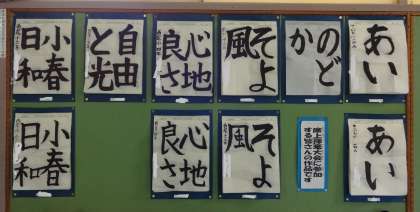 あい
のど
か
そよ
風
心地
良さ
自由
と光
小春
日和
あい
席上揮毫大会に参加
する皆さんの作品です
そよ
風
心地
良さ
小春
日和